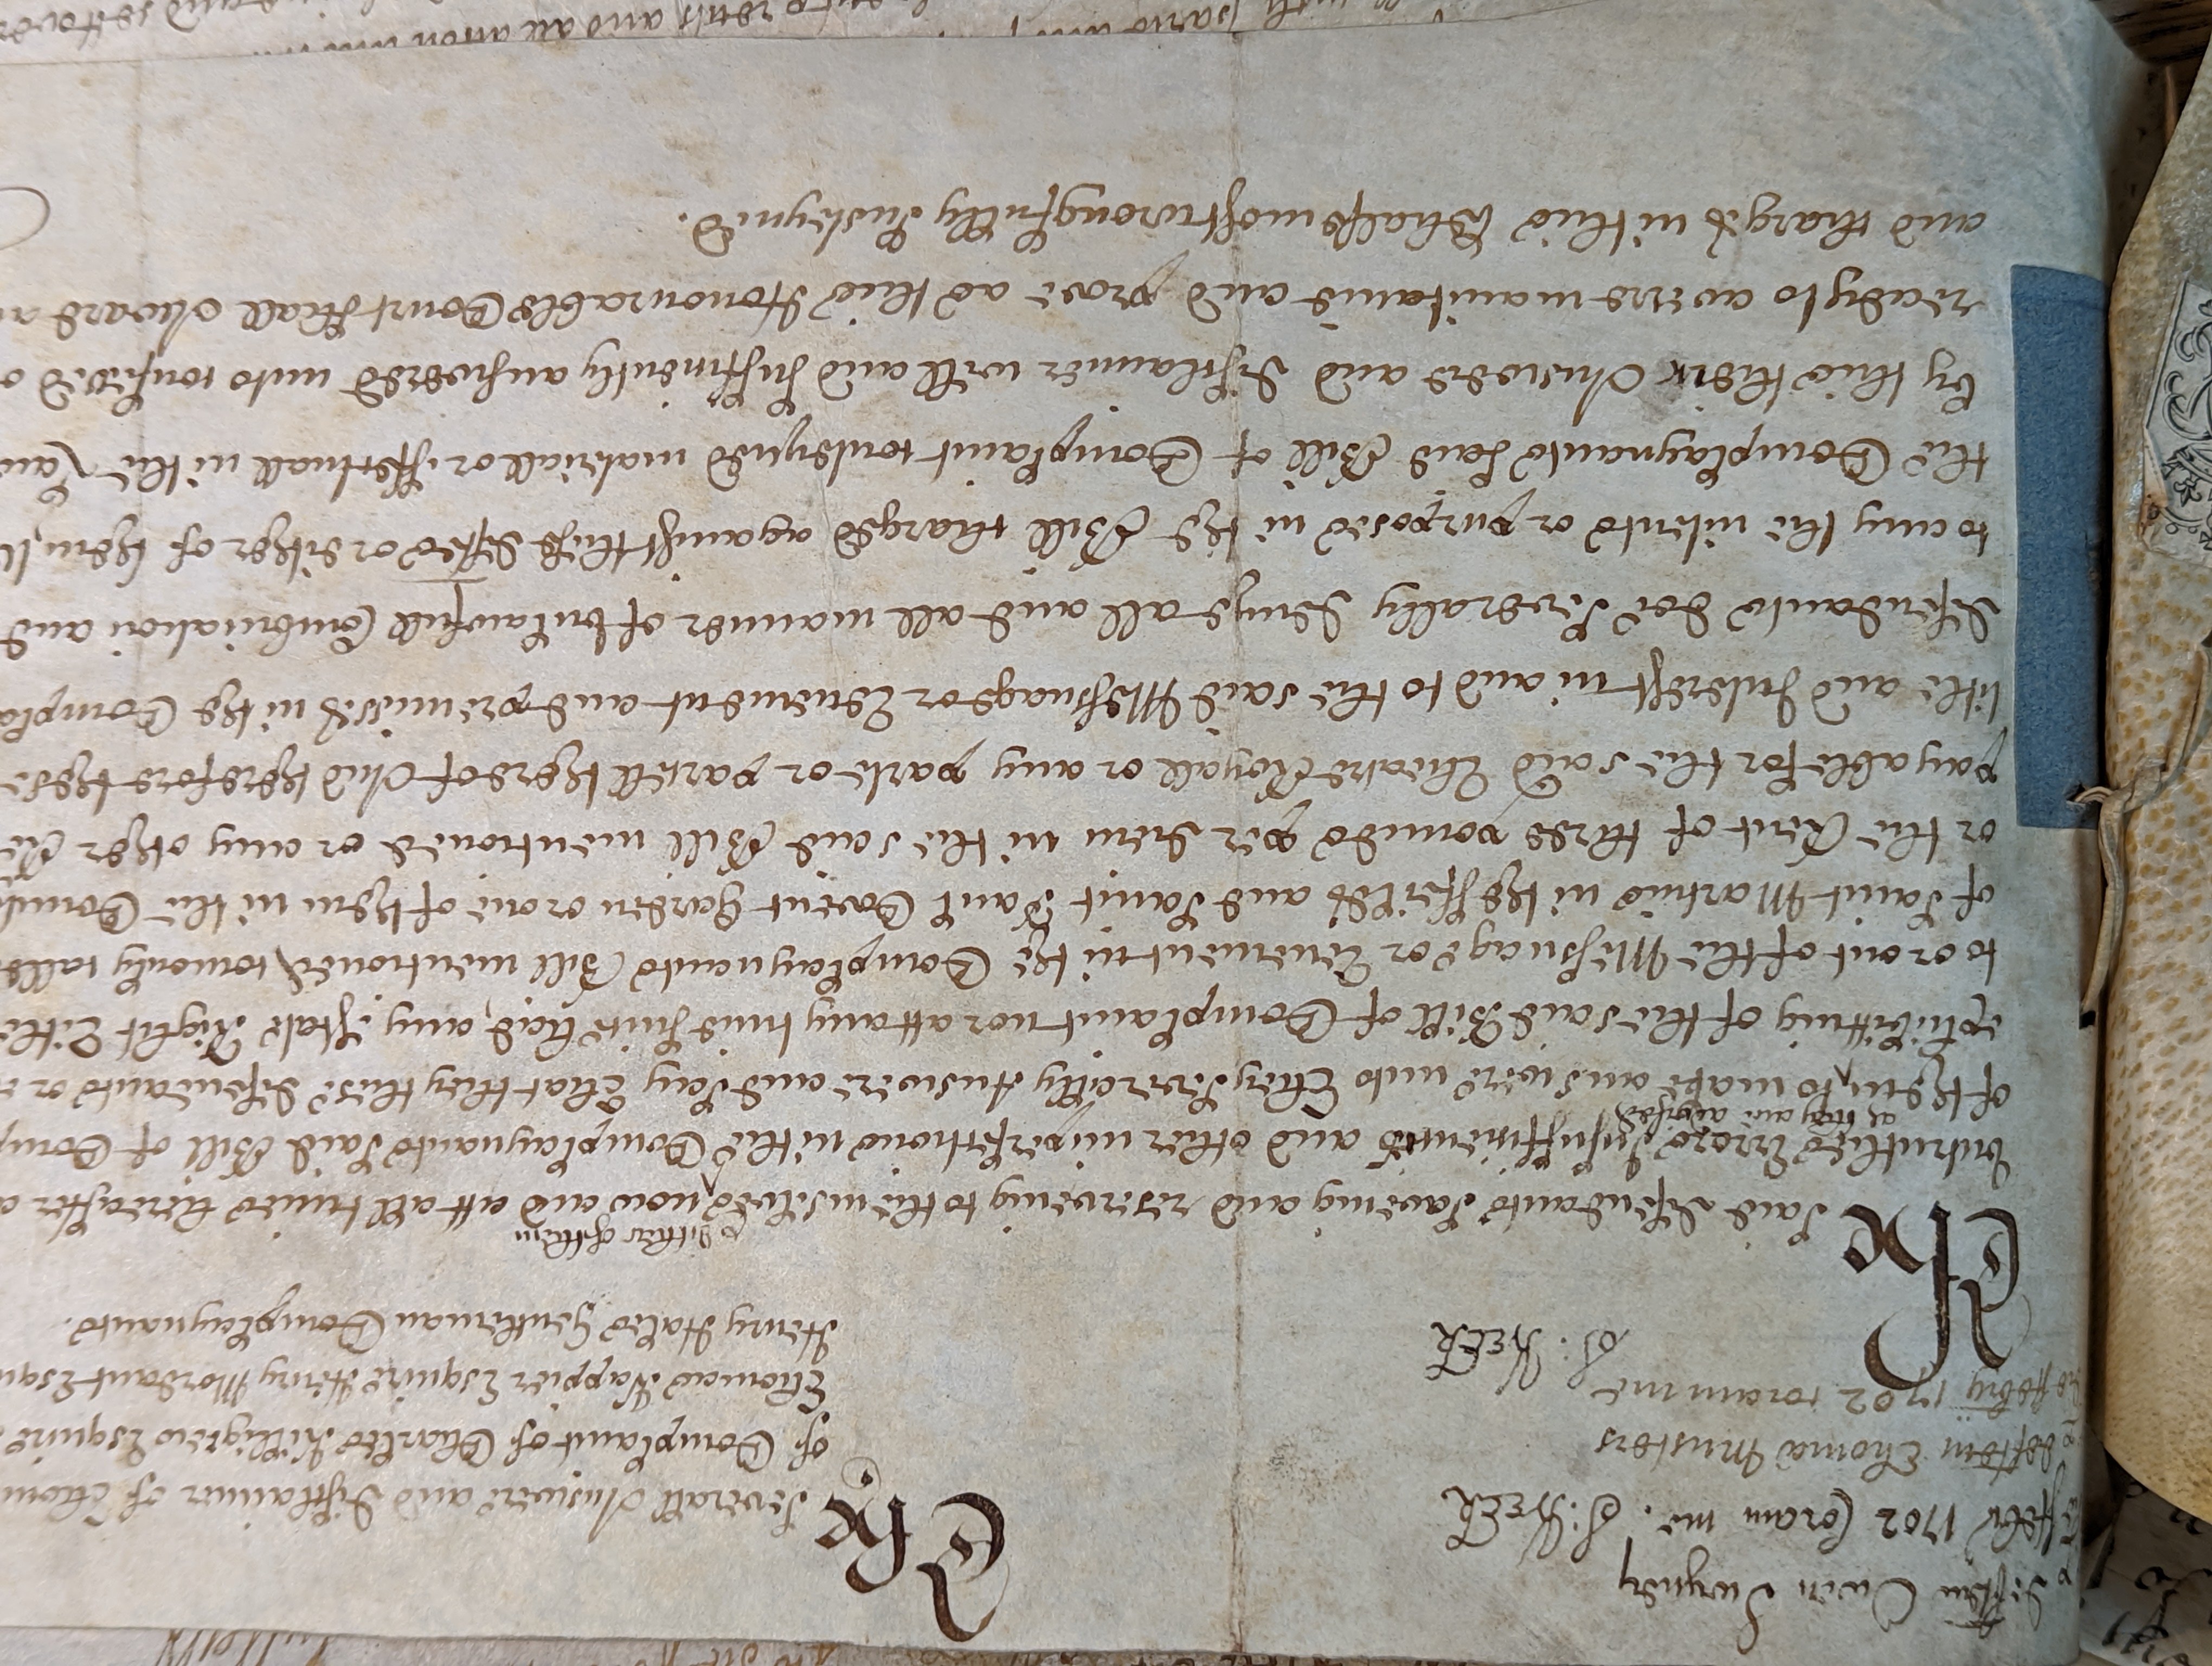 Owen Swyny
1702 Coram me. S: KECK
Thomas Musters
1702 coram me
S: KECK
The severall Answere and Disclaimer of Thom
of Complaint of Charles Killigrew Esquire
Thomas Nappier Esquire Henry Mordant Esqu
Henry Hales Gentleman Complaynants.
& either of them
The said defendants saveing and reserveing to themselves now and att all times hereafter a
incertainties Errors Insufficiencies and other imperfections in the Complaynants said Bill of Comp
as they are advised
of them to make answere unto They severally Answere and say That they these defendants or e
exhibitting of the said Bill of Complaint nor att any time since had, any Estate Right Title
to or out of the Messuage or Tenement in the Complaynants Bill mentioned comonly calle
of Saint Martins in the ffeilds and Saint Paul Covent Garden or one of them in the County
or the Rent of three pounds per diem in the said Bill mentioned or any other Re
payable for the said Theatre Royall or any parte or parcell thereof And therefore these
title and Interest in and to the said Messuage or Tenement and premisses in the Compla
defendants doe severally denye all and all manner of unlawfull Combination and
to any the intents or purposes in the Bill charged against these defts or either of them, W
the Complaynants said Bill of Complaint conteyned materiall or effectuall in the Law
by this their Answere and disclaimer well and sufficiently answered unto confessed o
ready to averre maintaine and prove as this Honourable Court shall Award a
and charges in this behalfe most wrongfully susteyned.